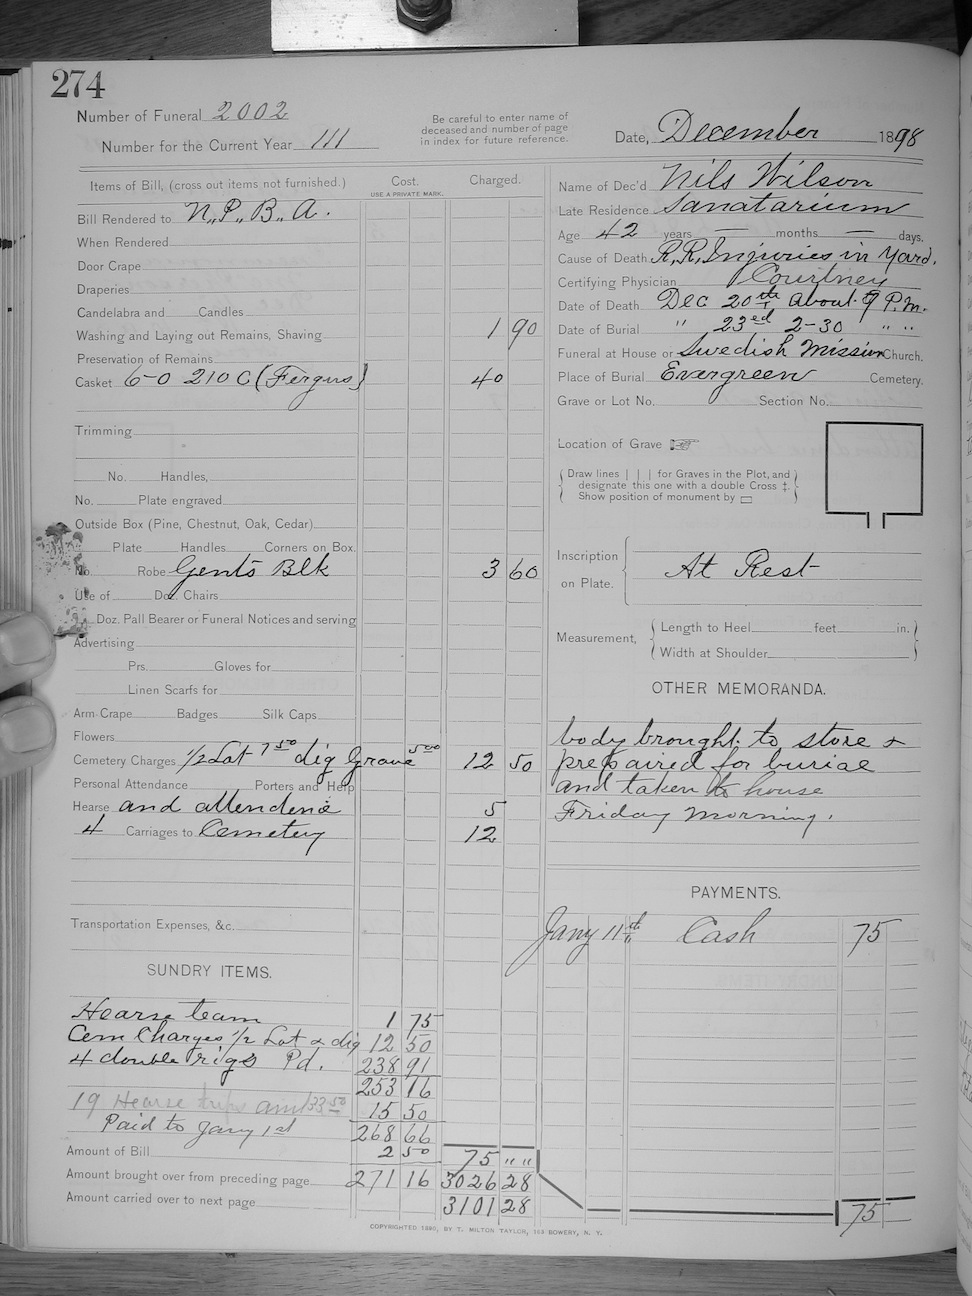 274
Number of Funeral 2002
Number for the Current Year 111
Be careful to enter name of
deceased and number of page
in index for future reference.
Date, December 1898
Items of Bill, (cross out items not furnished.) Cost. Charged.
USE A PRIVATE MARK.
Bill Rendered to N.,P.,B.,A.
When Rendered
Door Crape
Draperies
Candelabra and Candles
Washing and Laying out Remains, Shaving 1 90
Preservation of Remains
Casket 6-0 210 C (Fergus) 40
Trimming
No. Handles,
No. Plate engraved
Outside Box (Pine, Chestnut, Oak, Cedar)
Plate Handles Corners on Box.
No. Robe Gents Blk 3 60
Use of Doz. Chairs
Doz. Pall Bearer or Funeral Notices and serving
Advertising
Prs. Gloves for
Linen Scarfs for
Arm Crape Badges Silk Caps
Flowers
Cemetery Charges 1/2 Lot 7 50 dig Grave 5 00 12 50
Personal Attendance Porters and Help
Hearse and attendence 5
4 Carriages to Cemetery 12
Transportation Expenses, &c.
SUNDRY ITEMS.
Hearse team 1 75
Cem Charges 1/2 Lot & dig 12 50
4 double rigs Pd. 238 91
253 16
19 Hearse trips amt 33 50 15 50
Paid to Jany 1st 268 66
Amount of Bill 2 50 75 " "
Amount brought over from preceding page 271 16 3026 28
Amount carried over to next page 3101 28
Name of Dec'd Nils Wilson
Late Residence Sanatarium
Age 42 years — months — days.
Cause of Death R,R, Injuries in Yard.
Certifying Physician Courtney
Date of Death Dec 20th about 9 P.m.
Date of Burial " 23ed 2-30 " "
Funeral at House or Swedish Mission Church.
Place of Burial Evergreen Cemetery.
Grave or Lot No. Section No.
Location of Grave
Draw lines | | | for Graves in the Plot, and
designate this one with a double Cross ‡.
Show position of monument by ▭
Inscription
on Plate.
At Rest
Measurement,
Length to Heel feet in.
Width at Shoulder
OTHER MEMORANDA.
body brought to store &
prepaired for burial
and taken to house
Friday morning.
PAYMENTS.
Jany 11th Cash 75
75
COPYRIGHTED 1880, BY T. MILTON TAYLOR, 163 BOWERY, N. Y.